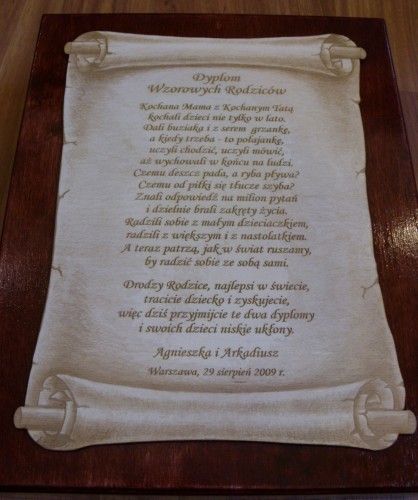 Dyplom
Wzorowych Rodziców
Kochana Mama z Kochanym Tatą
kochali dzieci nie tylko w lato.
Dali buziaka i z serem grzankę,
a kiedy trzeba - to połajankę,
uczyli chodzić, uczyli mówić,
aż wychowali w końcu na ludzi.
Czemu deszcz pada, a ryba pływa?
Czemu od piłki się tłucze szyba?
Znali odpowiedź na milion pytań
i dzielnie brali zakręty życia.
Radzili sobie z małym dzieciaczkiem,
radzili z większym i z nastolatkiem.
A teraz patrzą, jak w świat ruszamy,
by radzić sobie ze sobą sami.
Drodzy Rodzice, najlepsi w świecie,
tracicie dziecko i zyskujecie,
więc dziś przyjmijcie te dwa dyplomy
i swoich dzieci niskie ukłony.
Agnieszka i Arkadiusz
Warszawa, 29 sierpień 2009 r.